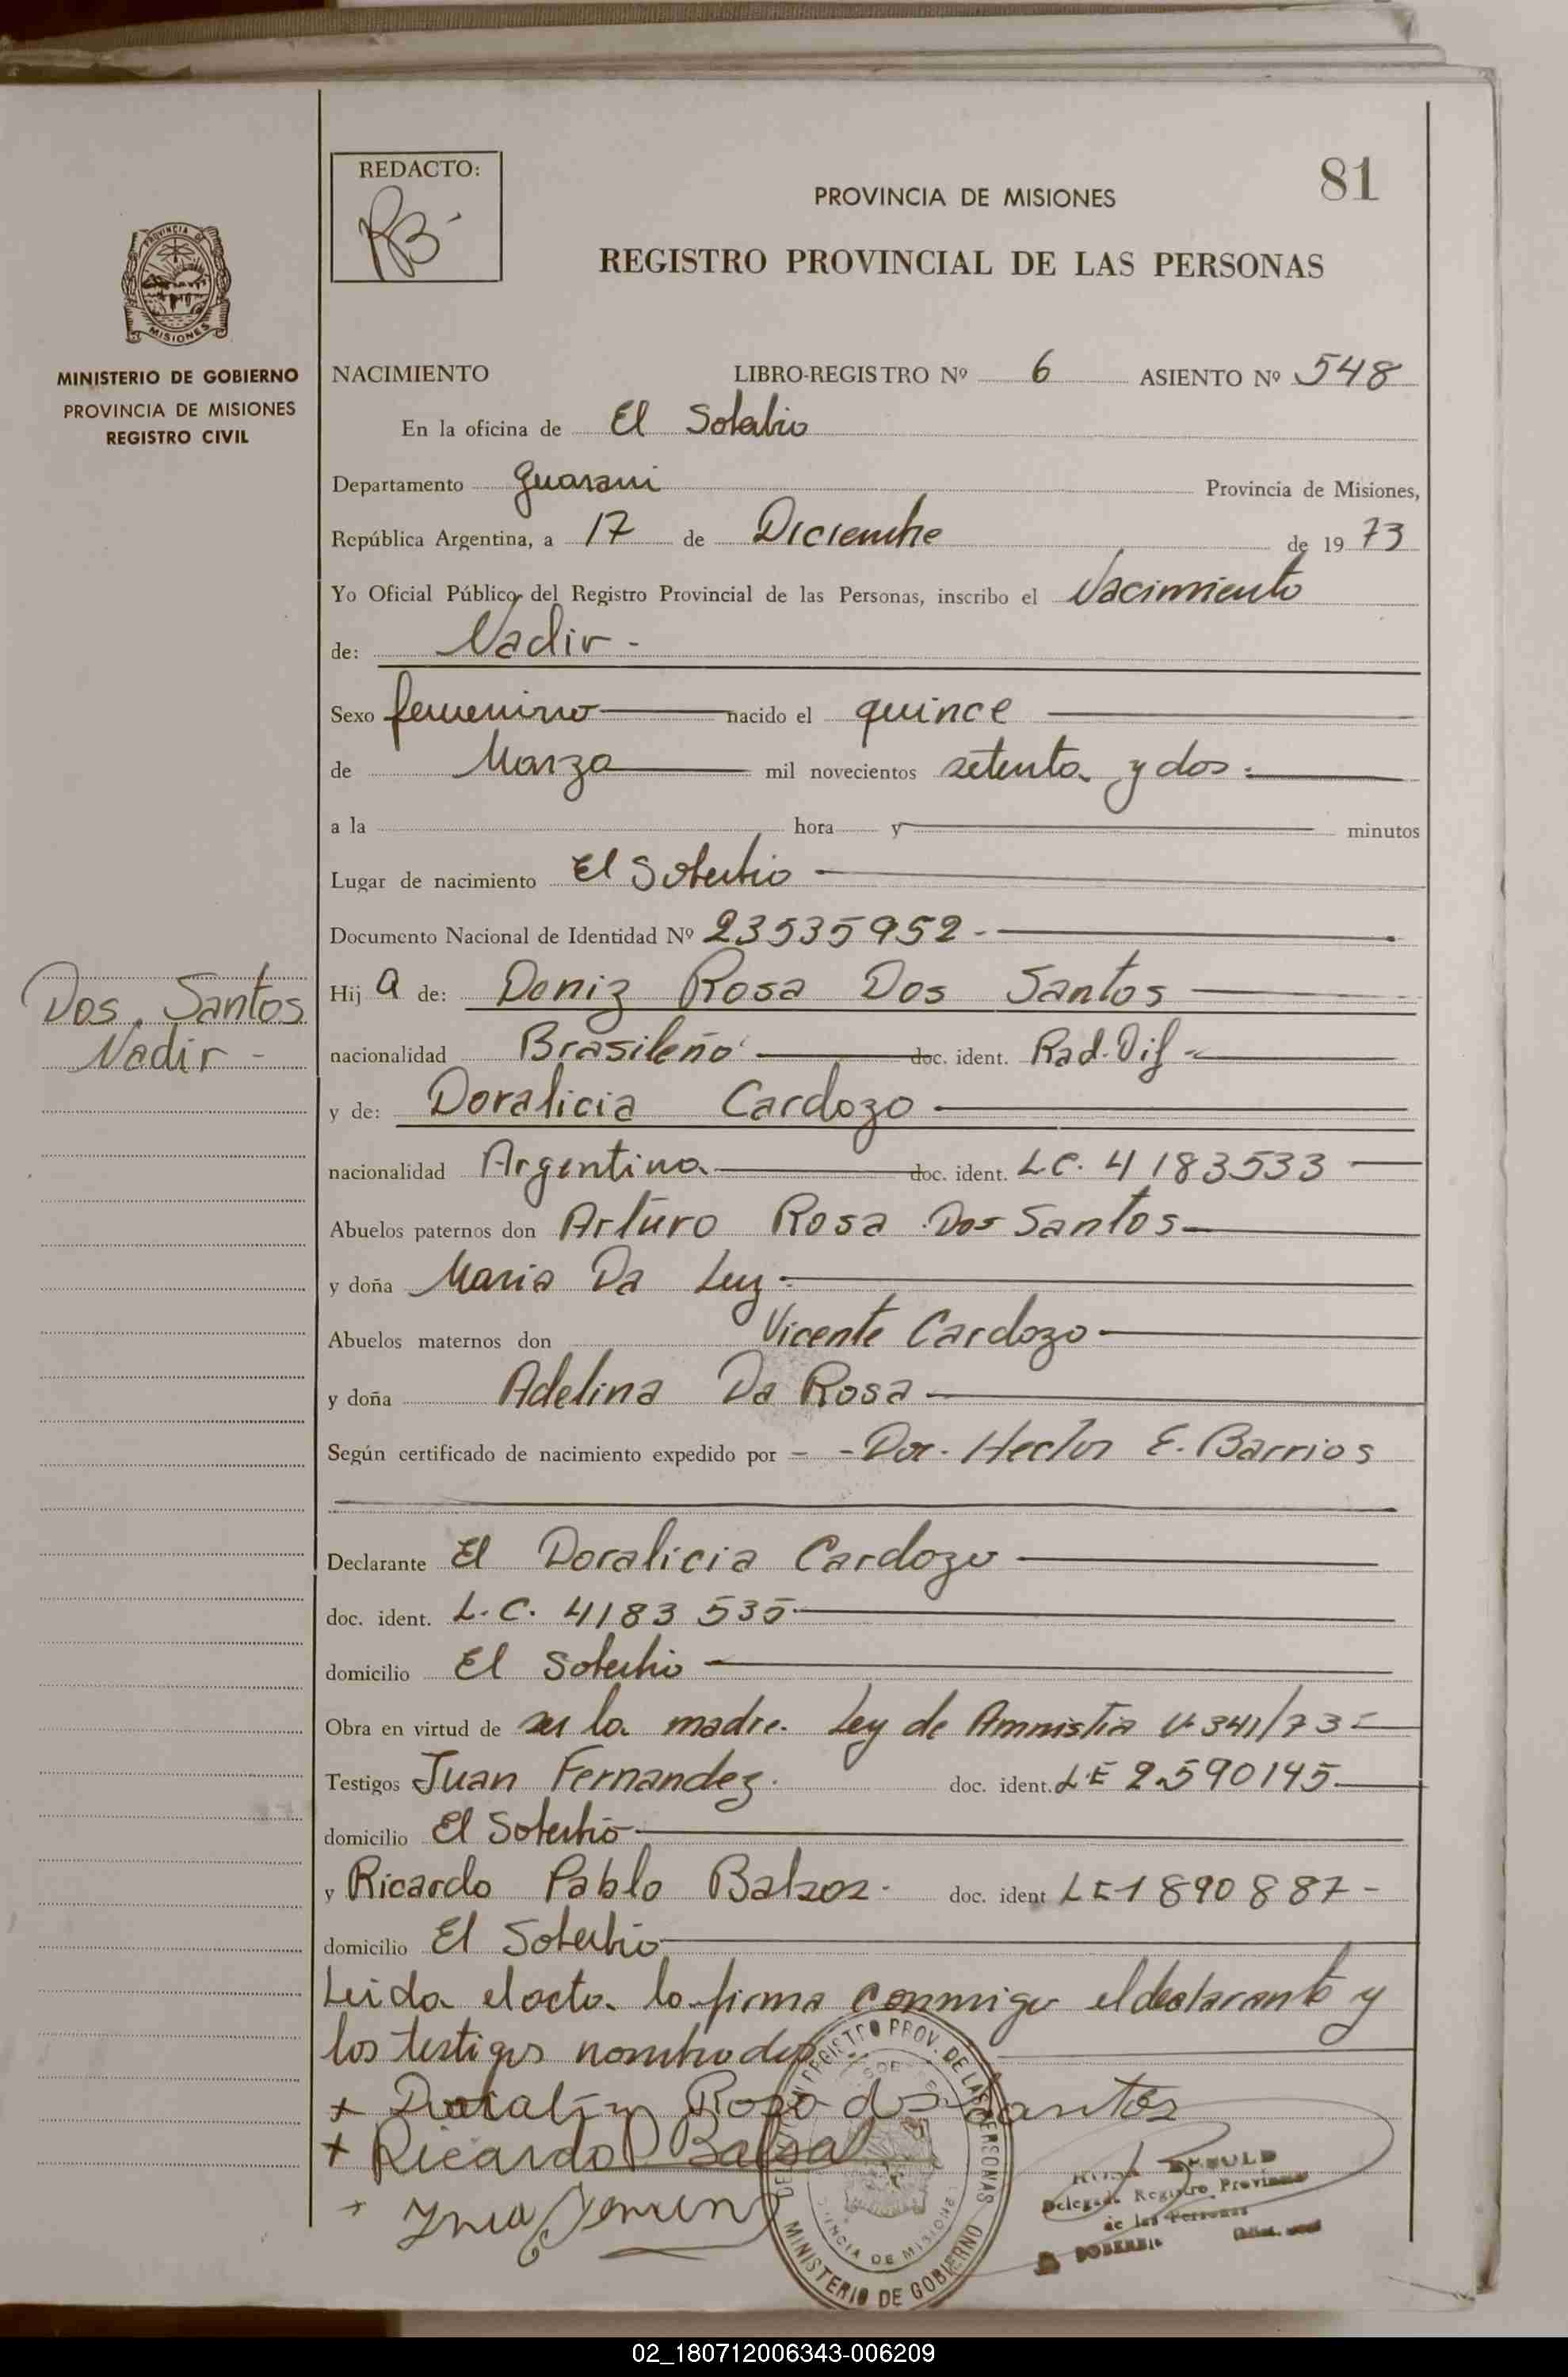 REDACTO:
RB
81
PROVINCIA DE MISIONES
REGISTRO PROVINCIAL DE LAS PERSONAS
PROVINCIA DE
MISIONES
MINISTERIO DE GOBIERNO
PROVINCIA DE MISIONES
REGISTRO CIVIL
NACIMIENTO LIBRO-REGISTRO Nº 6 ASIENTO Nº 548
En la oficina de El Soberbio
Departamento Guarani Provincia de Misiones,
República Argentina, a 17 de Diciembre de 1973
Yo Oficial Público del Registro Provincial de las Personas, inscribo el Nacimiento
de: Nadir -
Sexo femenino nacido el quince
de Marzo mil novecientos setenta y dos
a la hora y minutos
Lugar de nacimiento El Soberbio
Documento Nacional de Identidad Nº 23535952 -
Dos Santos
Nadir -
Hij a de: Deniz Rosa Dos Santos
nacionalidad Brasileño doc. ident. Rad. Dif
y de: Doralicia Cardozo
nacionalidad Argentina doc. ident. L.C. 4183533
Abuelos paternos don Arturo Rosa Dos Santos
y doña Maria Da Luz
Abuelos maternos don Vicente Cardozo
y doña Adelina Da Rosa
Según certificado de nacimiento expedido por - - Doc. Hector E. Barrios
Declarante El Doralicia Cardozo
doc. ident. L.C. 4183535
domicilio El Soberbio
Obra en virtud de ser la madre. Ley de Amnistia 341/73
Testigos Juan Fernandez. doc. ident. LE 2.590145
domicilio El Soberbio
y Ricardo Pablo doc. ident LE 1890887-
domicilio El Soberbio
Leida el acta la firma conmigo el declarante y
los testigos nombrados
+ Rosa dos Santos
+ Ricardo P Balsa
REGISTRO PROV. DE LAS PERSONAS
PROVINCIA DE MISIONES
MINISTERIO DE GOBIERNO
Delegada Registro Provincial
de las Personas
SOBERBIO
02_180712006343-006209